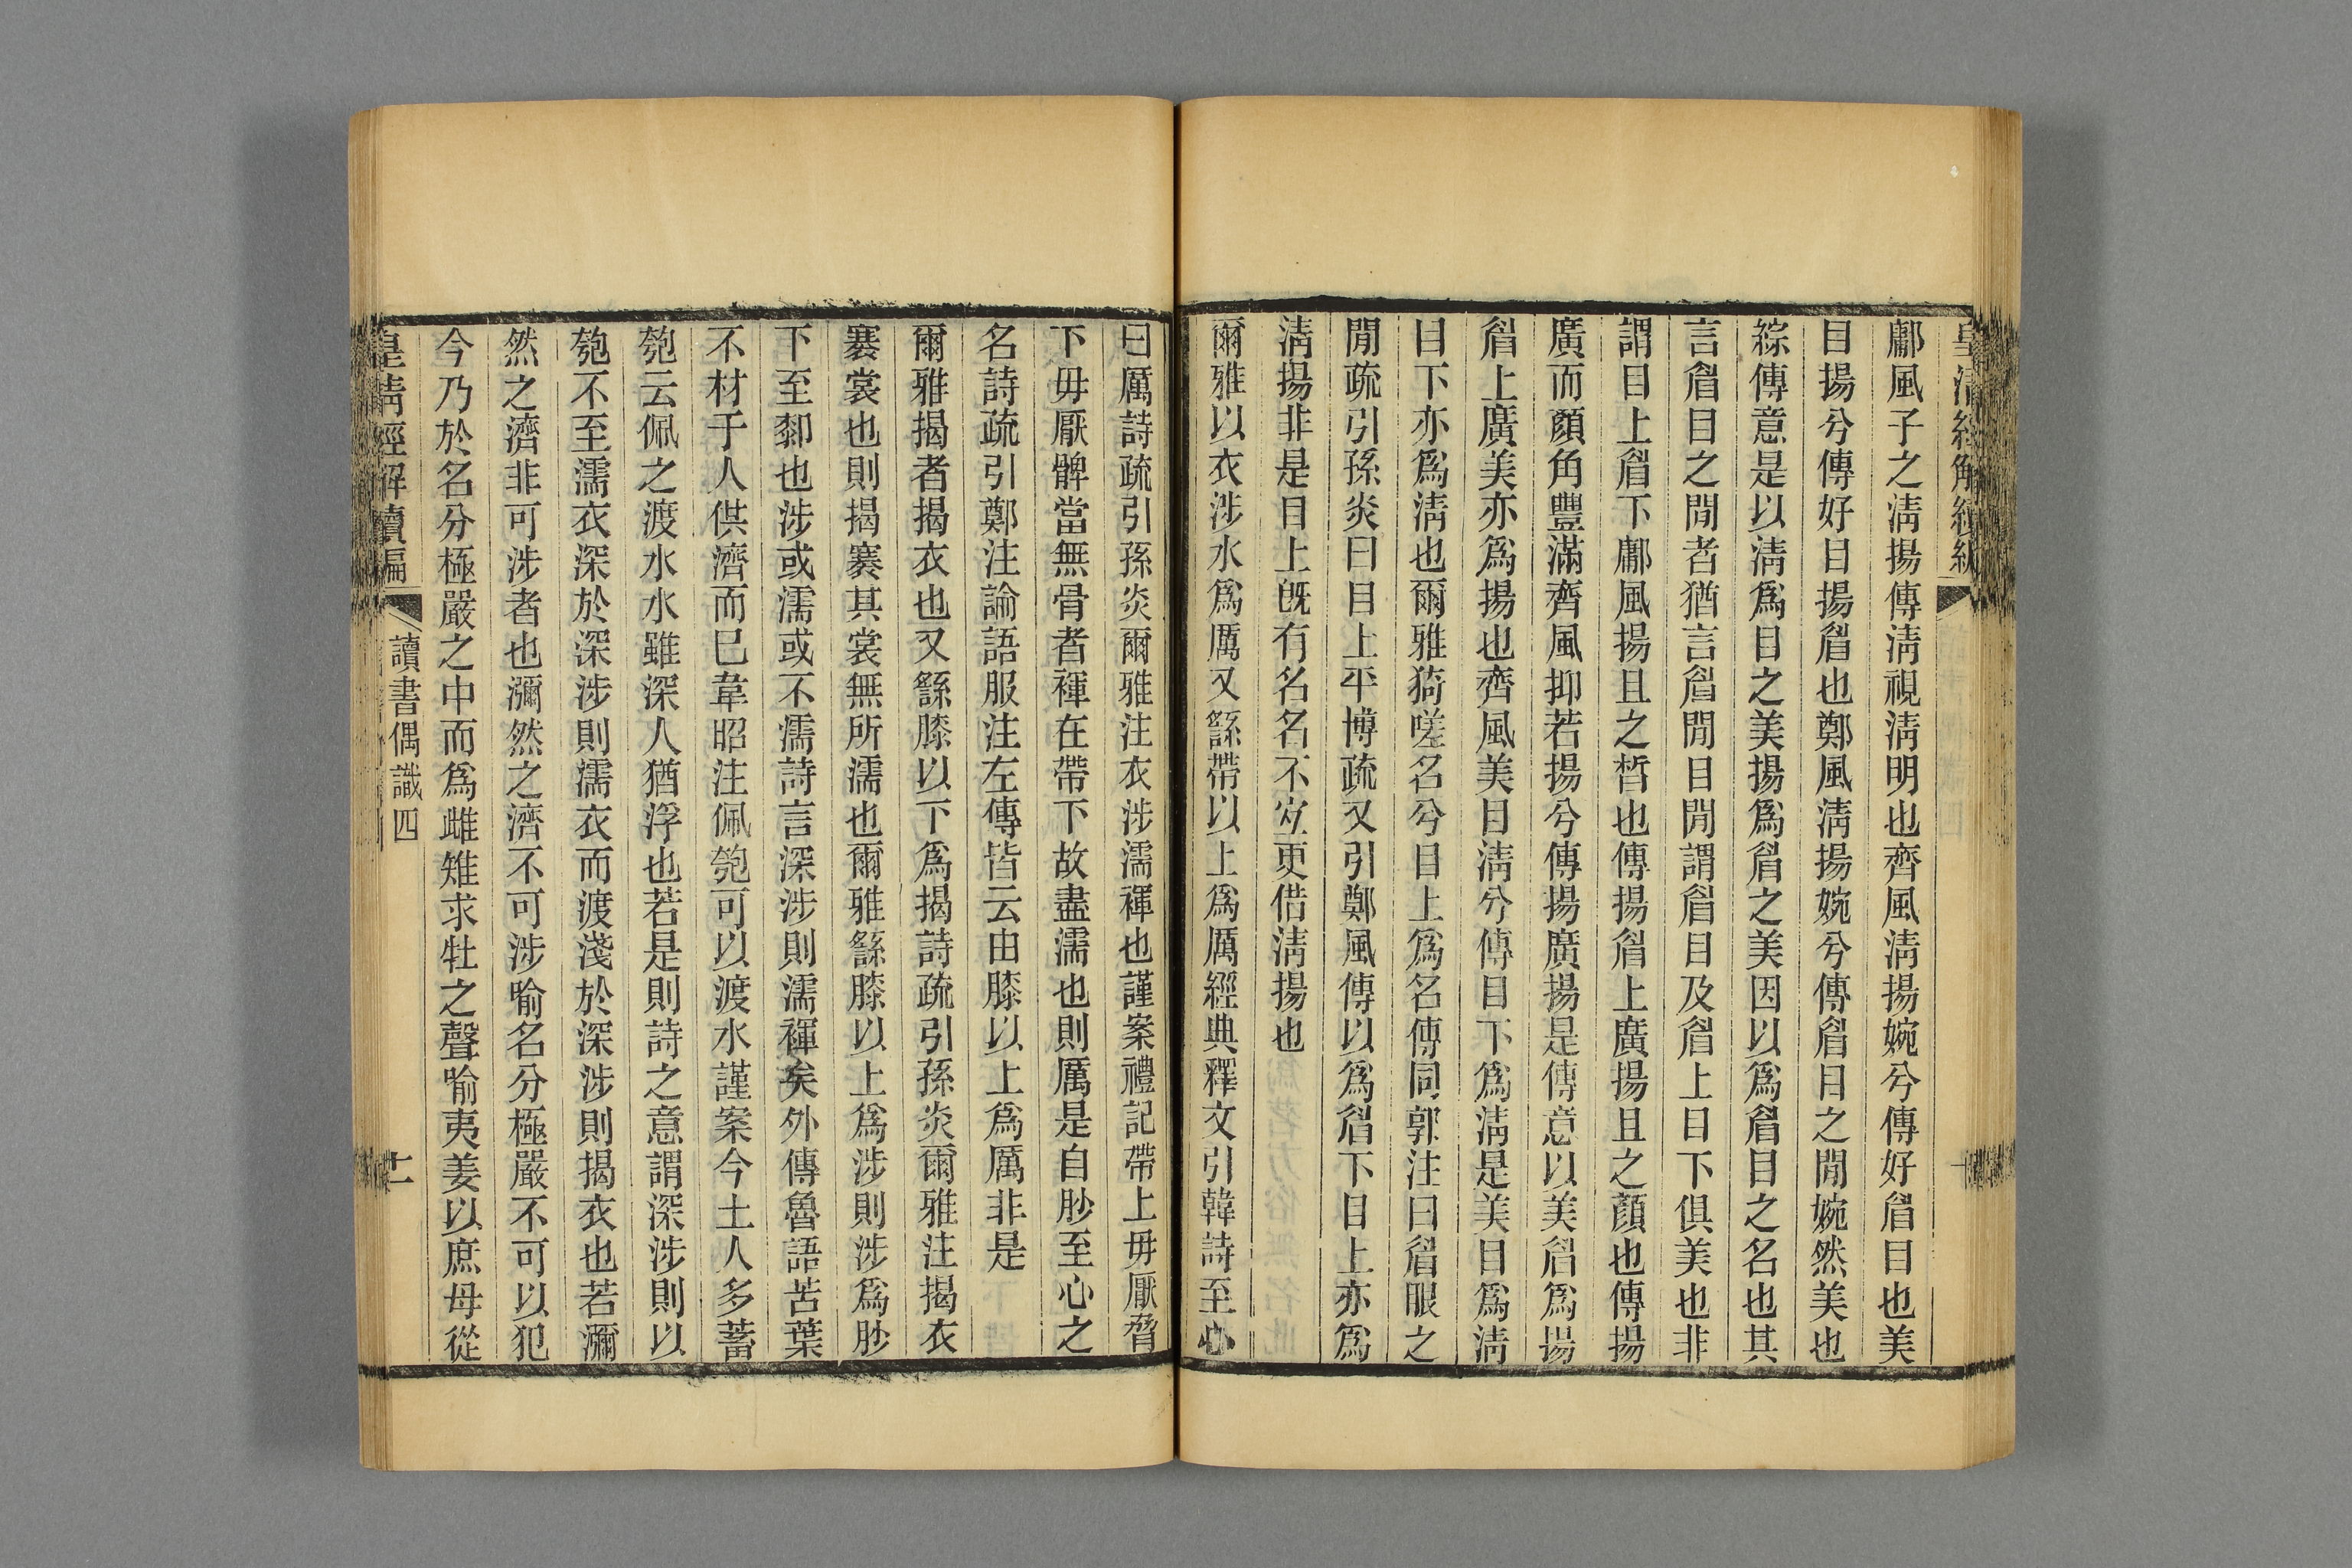 皇清經解續編
鄘風子之淸揚傳淸視淸明也齊風淸揚婉兮傳好眉目也美
目揚兮傳好目揚眉也鄭風淸揚婉兮傳眉目之閒婉然美也
綜傳意是以淸爲目之美揚爲眉之美因以爲眉目之名也其
言眉目之閒者猶言眉閒目閒謂眉目及眉上目下俱美也非
謂目上眉下鄘風揚且之晳也傳揚眉上廣揚且之顏也傳揚
廣而顏角豐滿齊風抑若揚兮傳揚廣揚是傳意以美眉爲揚
眉上廣美亦爲揚也齊風美目淸兮傳目下爲淸是美目爲淸
目下亦爲淸也爾雅猗嗟名兮目上爲名傳同郭注曰眉眼之
閒疏引孫炎曰目上平博疏又引鄭風傳以爲眉下目上亦爲
淸揚非是目上旣有名名不宐更借淸揚也
爾雅以衣涉水爲厲又繇帶以上爲厲經典釋文引韓詩至心
曰厲詩疏引孫炎爾雅注衣涉濡褌也謹案禮記帶上毋厭脅
下毋厭髀當無骨者褌在帶下故盡濡也則厲是自䏚至心之
名詩疏引鄭注論語服注左傳皆云由膝以上爲厲非是
爾雅揭者揭衣也又繇膝以下爲揭詩疏引孫炎爾雅注揭衣
褰裳也則揭褰其裳無所濡也爾雅繇膝以上爲涉則涉爲䏚
下至䣛也涉或濡或不濡詩言深涉則濡褌矣外傳魯語苦葉
不材于人供濟而巳韋昭注佩匏可以渡水謹案今土人多蓄
匏云佩之渡水水雖深人猶浮也若是則詩之意謂深涉則以
匏不至濡衣深於深涉則濡衣而渡淺於深涉則揭衣也若瀰
然之濟非可涉者也瀰然之濟不可涉喻名分極嚴不可以犯
今乃於名分極嚴之中而爲雌雉求牡之聲喻夷姜以庶母從
皇淸經解續編
讀書偶識四
十一